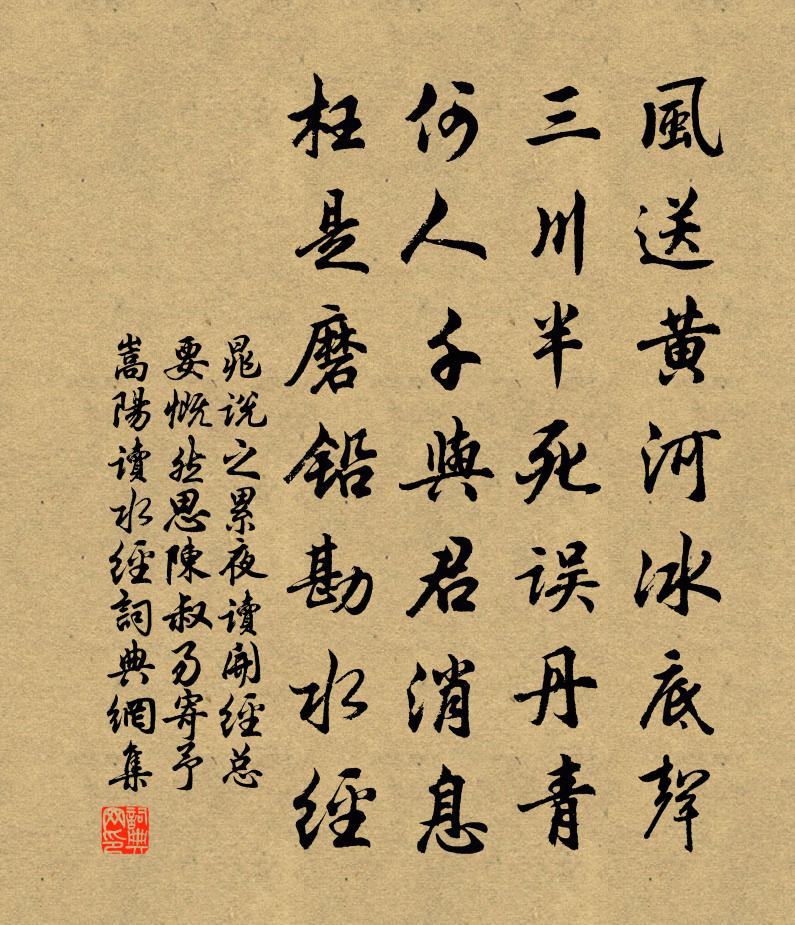 風送黄河冰底聲
三川半死誤丹青
何人千與君消息
枉是磨鉛勘水經
晁說之累夜讀開經总
要慨然思陳叔易寄予
嵩陽讀水經詞典網集
詞典网印